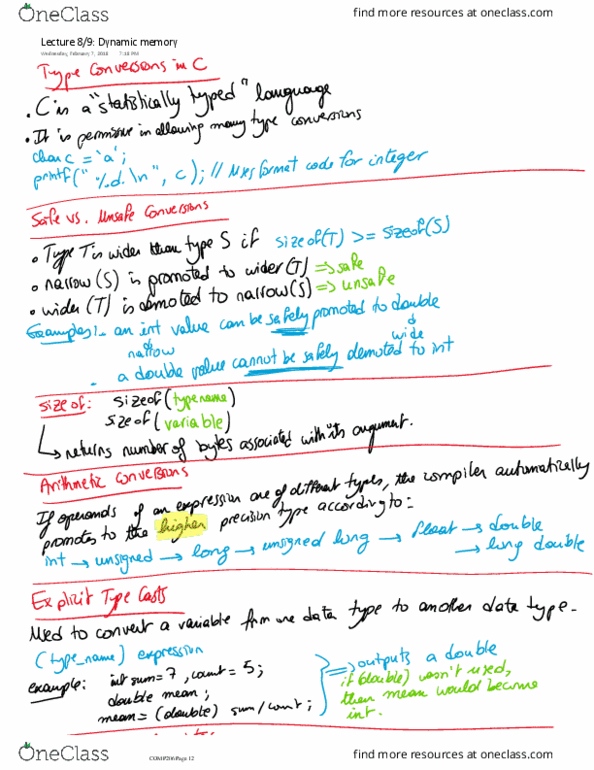 OneClass
find more resources at oneclass.com
Lecture 8/9: Dynamic memory
Wednesday, February 7, 2018 7:18 PM
Type Conversions in C
• C is a "statistically typed" language
• It is permissive in allowing many type conversions
char c = 'a';
printf("%d.\n", c); // Uses format code for integer
Safe vs. Unsafe Conversions
• Type T is wider than type S if sizeof(T) >= sizeof(S)
• narrow (S) is promoted to wider (T) => safe
• wider (T) is demoted to narrow(S) => unsafe
Examples:- an int value can be safely promoted to double
narrow
wide
- a double value cannot be safely demoted to int
sizeof: sizeof(typename)
sizeof(variable)
→ returns number of bytes associated with its argument.
Arithmetic Conversions
If operands of an expression are of different types, the compiler automatically
promotes to the higher precision type according to:
int → unsigned → long → unsigned long → float → double
→ long double
Explicit Type Casts
Used to convert a variable from one data type to another data type.
(type_name) expression
example: int sum = 7, count = 5;
double mean;
mean = (double) sum/count;
=> outputs a double
if (double) wasn't used,
then mean would become
int.
OneClass
COMP206 Page 12
find more resources at oneclass.com